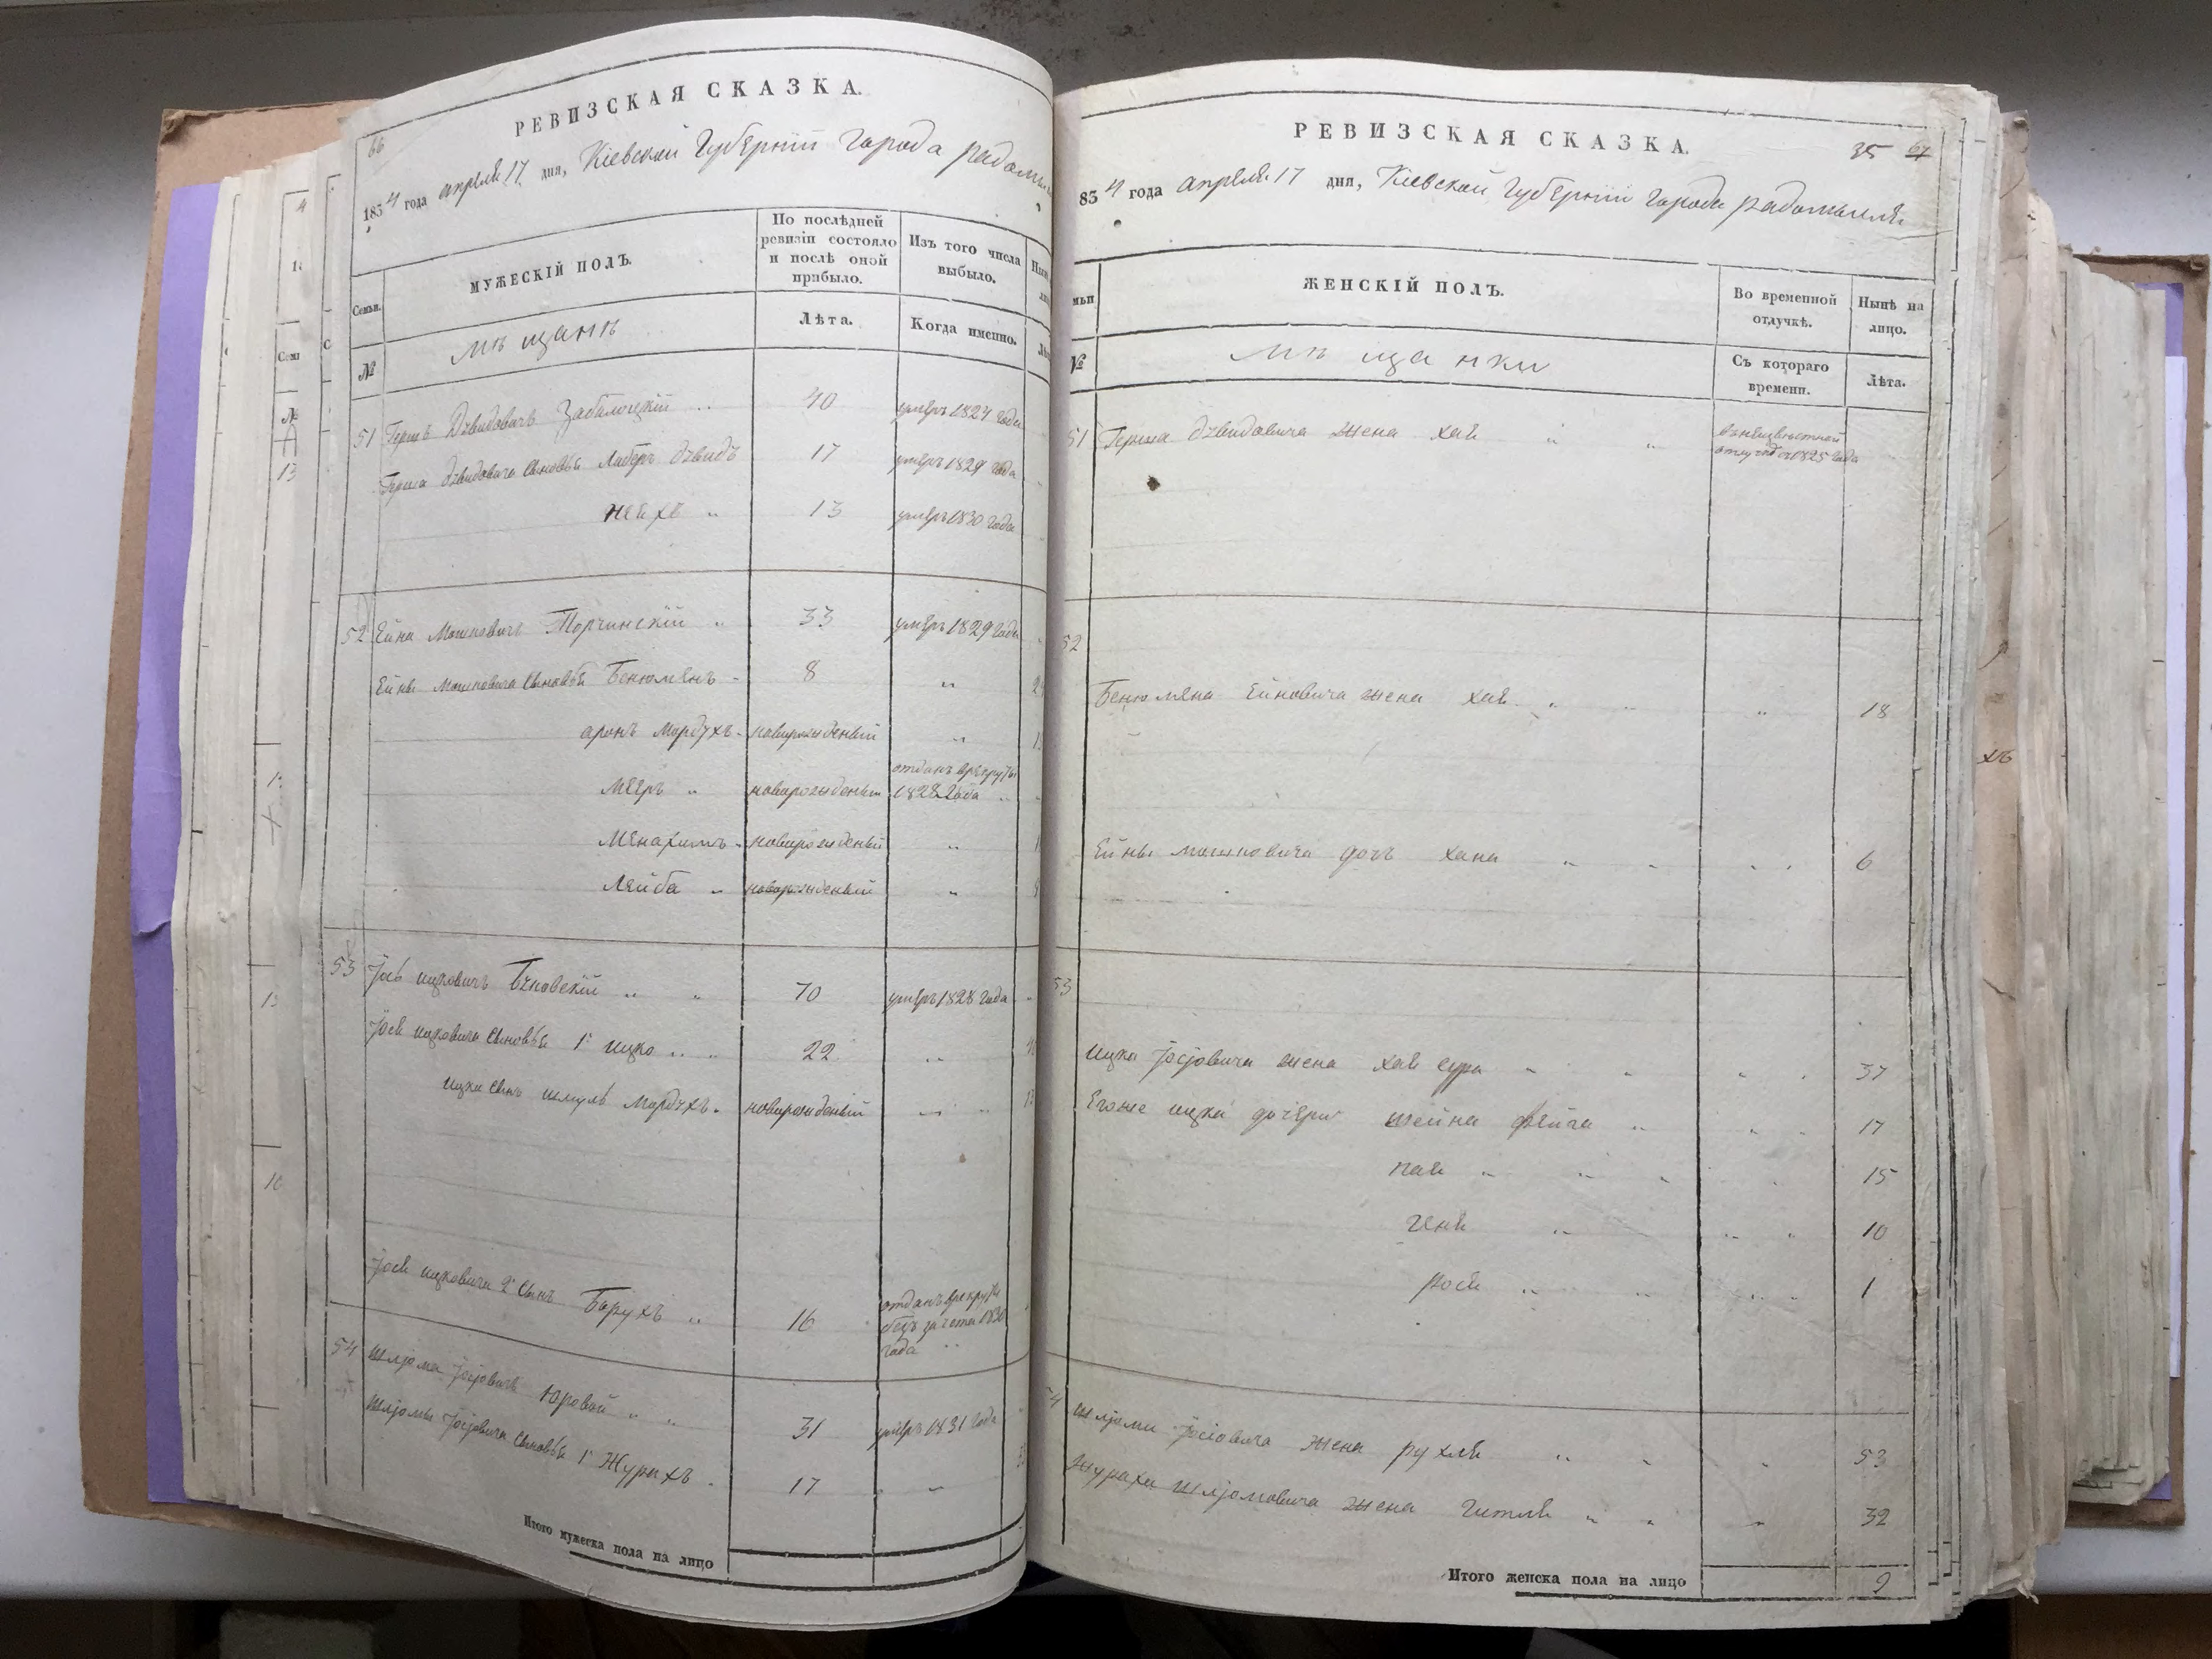 66
РЕВИЗСКАЯ СКАЗКА.
1834 года апреля 17 дня, Кіевской Губерніи города радомы
Семьи.
МУЖЕСКІЙ ПОЛЪ.
По послѣдней ревизіи состояло и послѣ оной прибыло.
Изъ того числа выбыло.
№
мѣщанѣ
Лѣта.
Когда именно.
51 Гершъ Дѣвидовичъ Забалоцкій 40 умеръ 1824 года
Герша дѣвидовича сыновья Либеръ дѣвидъ 17 умеръ 1829 года
13 умеръ 1830 года
52 Ейна Мошковичъ Торчинскій 33 умеръ 1829 года
Ейны Мошковича сыновья Бенюменъ 8
аронъ Мордухъ новирожденый
Мееръ новирожденый отданъ врекруты 1828 года
Менахимъ новирожденый
Лейба новирожденый
53 Іось ицковичъ 70 умеръ 1828 года
Іося ицковича сыновья 1й ицко 22
ицки сынъ шмуль Мордухъ новирожденый
Іося ицковича 2й сынъ Борухъ 16 отданъ врекруты безъ зачота 1830 года
54 шліома Іосіовичъ Юровой 31 умеръ 1831 года
шліомы Іосіовича сыновья 1й Журахъ 17
Итого мужеска пола на лицо
35 67
РЕВИЗСКАЯ СКАЗКА.
834 года апреля 17 дня, Кіевской Губерніи города радомысля
ЖЕНСКІЙ ПОЛЪ.
Во временной отлучкѣ.
Нынѣ на лицо.
№
мѣщанки
Съ котораго времени.
Лѣта.
51 Герша дѣвидовича жена хая внеизвѣстной отлучкѣ с 1825 года
52
Бенюмена Ейновича жена хая 18
Ейны мошковича дочь хана 6
53
ицка Іосіовича жена хая сура 37
Егоже ицка дочери шейна фейга 17
пая 15
геня 10
рося 1
54 шліоми Іосіовича жена рухля 53
журахи шліомовича жена гитля 32
Итого женска пола на лицо 9